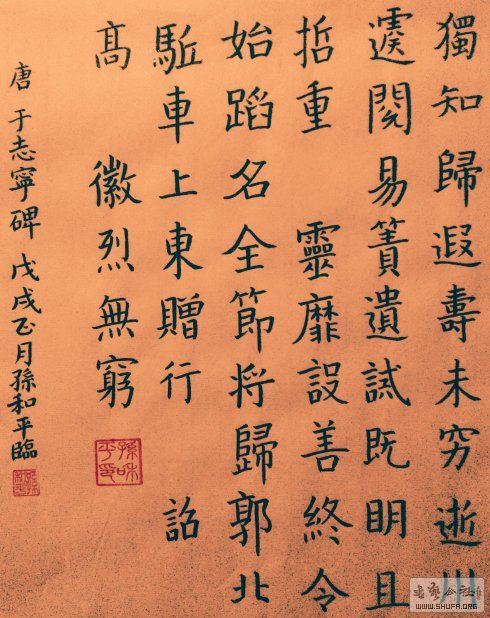 獨知歸遐壽未穷逝川
遽閱易簀遺誠既明且
哲重靈靡設善終令
始蹈名全節将歸郭北
駈車上東贈行詔
髙徽烈無窮
唐于志寧碑戊戌正月孫和平臨
孫和平印
WWW.SHUFA.ORG